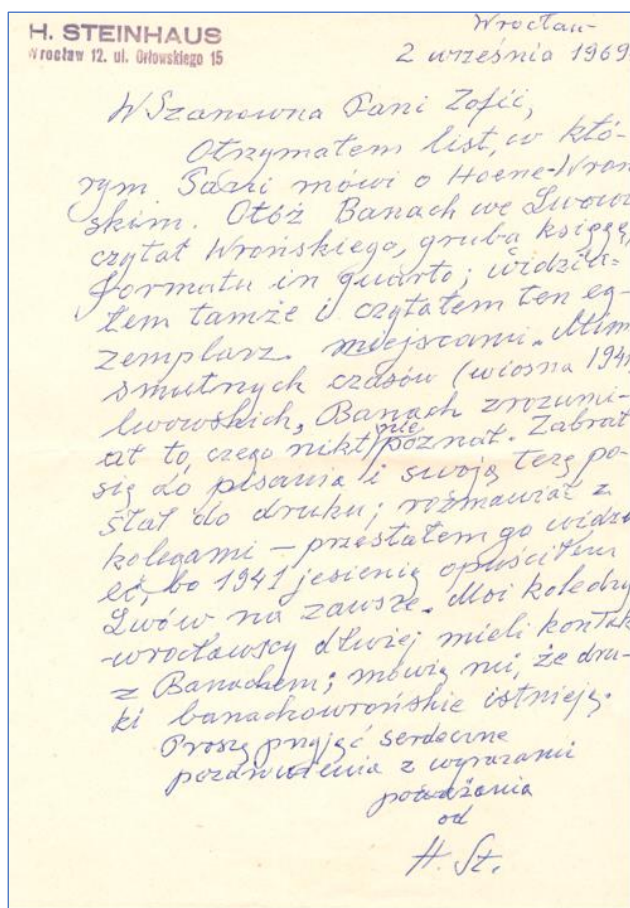 H. STEINHAUS
Wrocław 12. ul. Orłowskiego 15
Wrocław
2 września 1969
WSzanowna Pani Zofii,
Otrzymałem list, w któ-
rym Pani mówi o Hoene-Wroń
skim. Otóż Banach we Lwowi
czytał Wrońskiego, grubą księgę,
formatu in quarto; widzia-
łem tamże i czytałem ten eg-
zemplarz miejscami. Mim
smutnych czasów (wiosna 1941
lwowskich, Banach zrozumi-
ał to, czego nikt nie poznał. Zabrał
się do pisania i swoją tezę po-
słał do druku; rozmawiał z
kolegami – przestałem go widzi
eć, bo 1941 jesienią opuściłem
Lwów na zawsze. Moi koledzy
wrocławscy dłużej mieli kontak
z Banachem; mówią mi, że dru-
ki banachowrońskie istnieją.
Proszę przyjąć serdeczne
pozdrowienia z wyrazami
poważania
od
H. St.